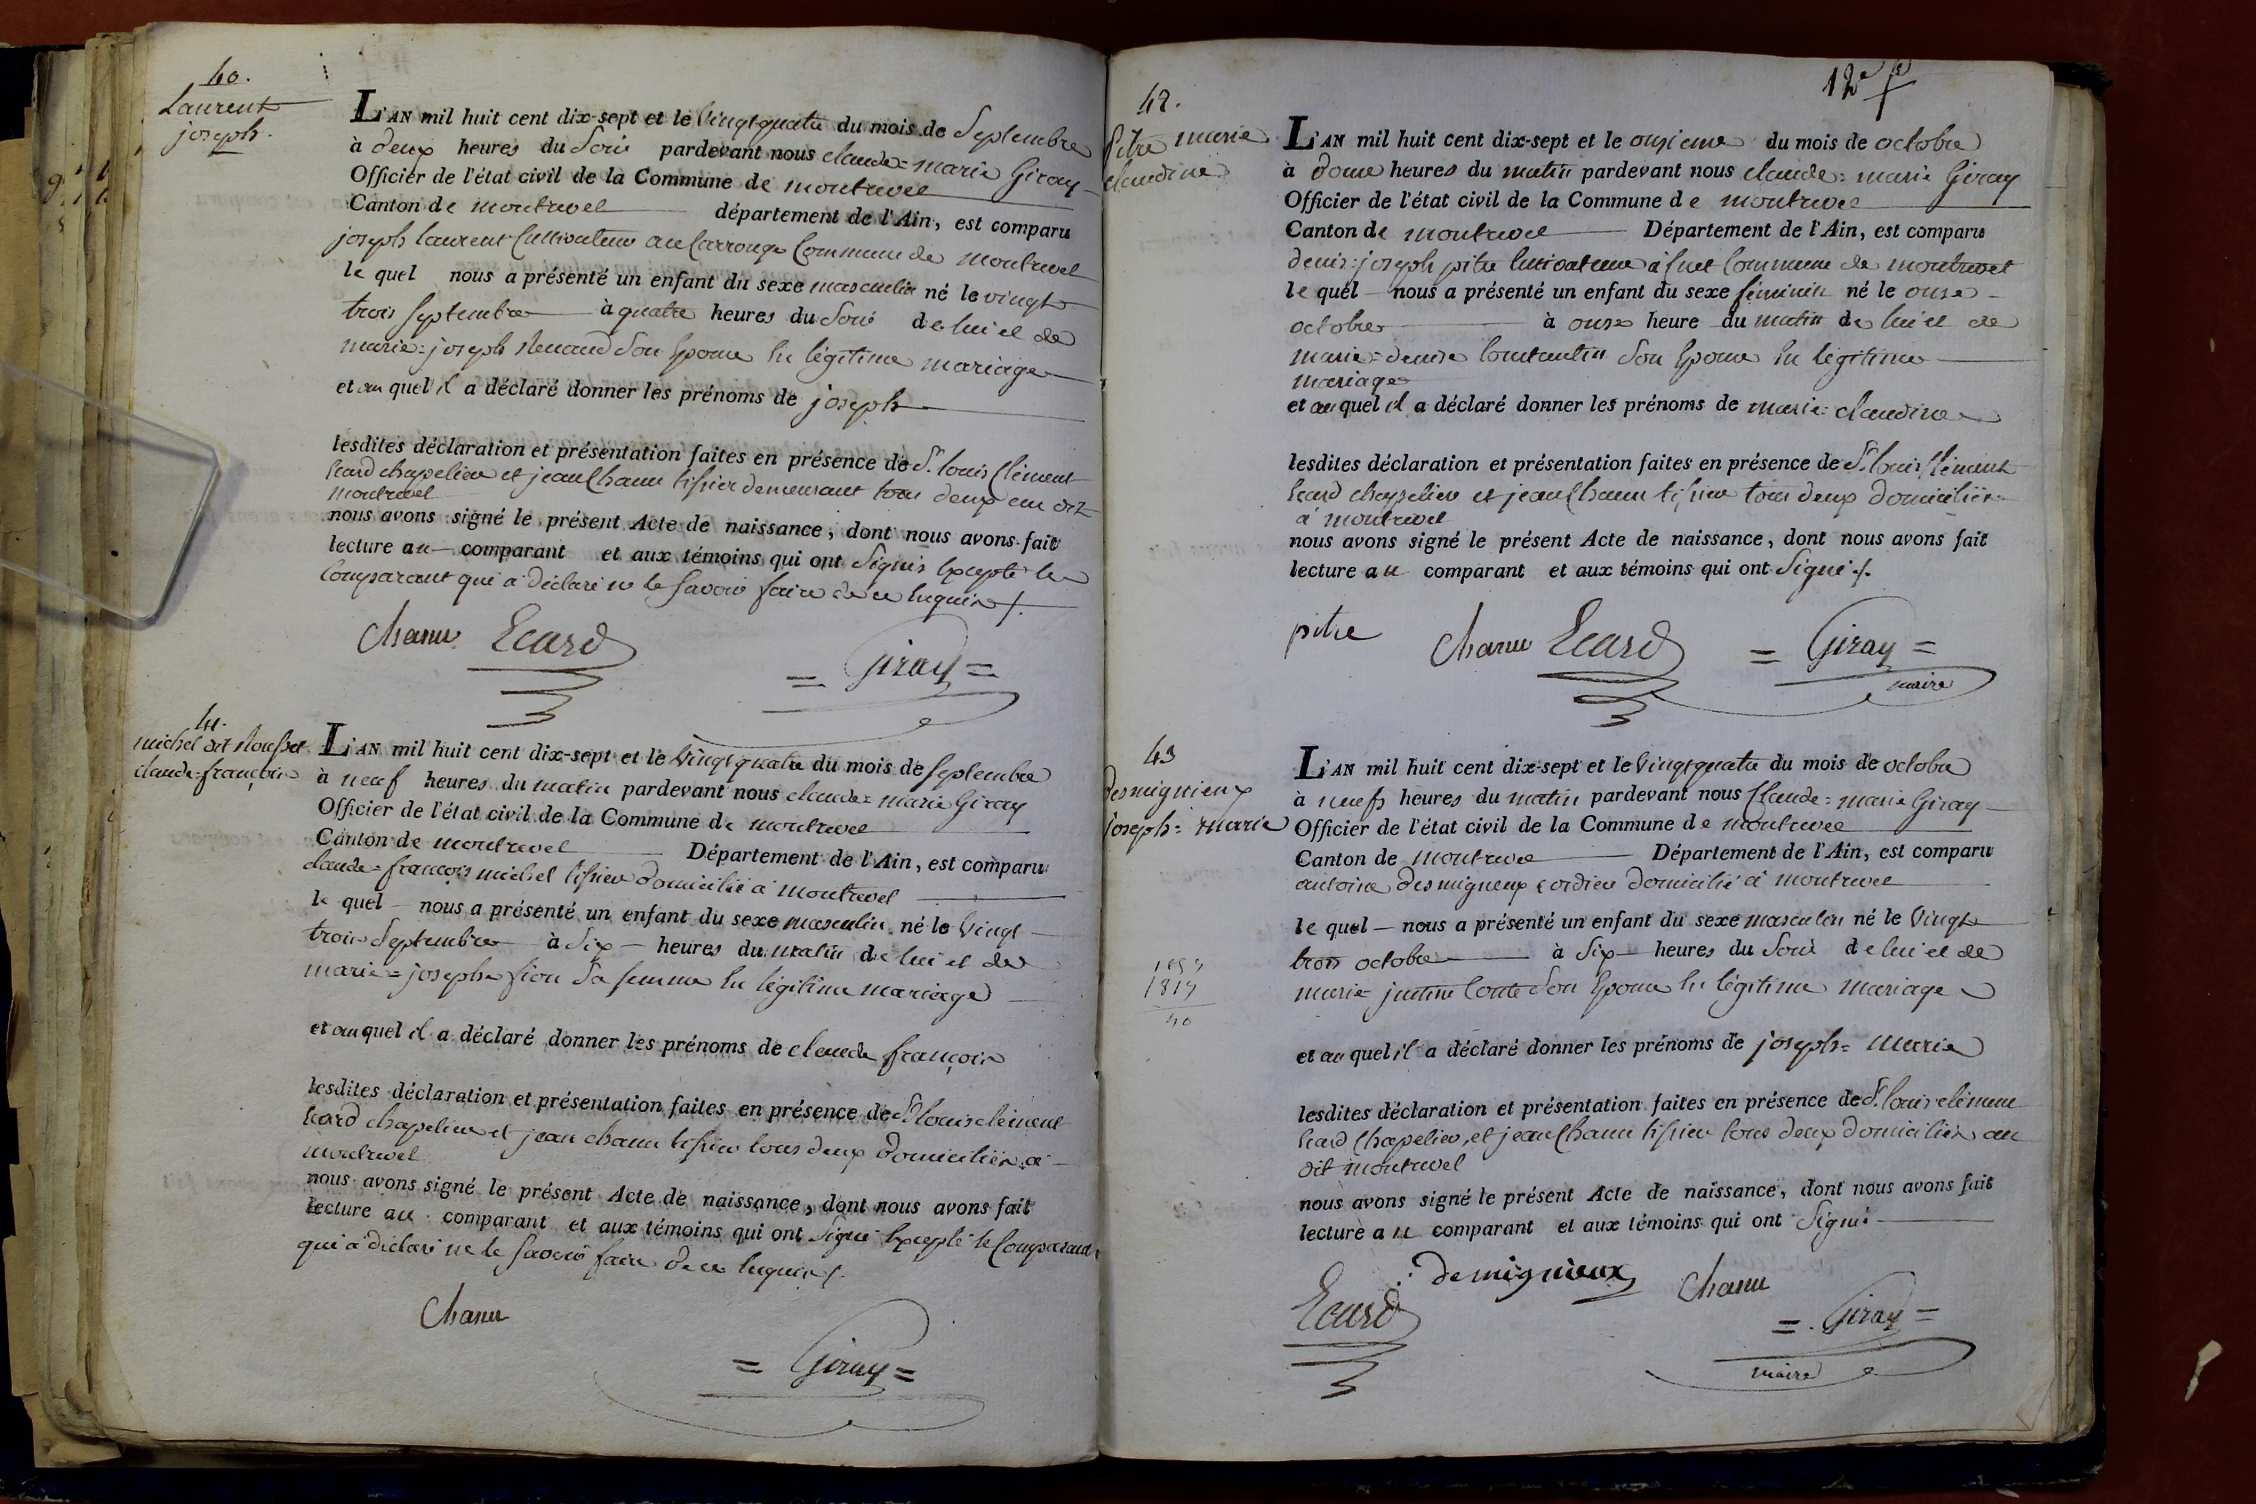 40.
Laurent
joseph.
L'AN mil huit cent dix-sept et le vingt quatre du mois de Septembre
à deux heures du Soir pardevant nous claude=marie Giray
Officier de l'état civil de la Commune de montrevel
Canton de montrevel département de l'Ain, est comparu
joseph laurent Cultivateur au Carrouge Commune de montrevel
le quel nous a présenté un enfant du sexe masculin né le vingt
trois Septembre à quatre heures du Soir de lui et de
marie=joseph Renaud Son Epouse En légitime mariage
et au quel il a déclaré donner les prénoms de joseph
lesdites déclaration et présentation faites en présence de Sr. louis Clément
Ecard chapelier et jean Chanu tissier demeurant tous deux au dit
montrevel
nous avons signé le présent Acte de naissance, dont nous avons fait
lecture au comparant et aux témoins qui ont Signés Excepté le
Comparant qui a déclaré ne le Savoir faire de ce Enquis /.
Chanu Ecard = Giray =
41.
michel dit Rousset
claude=françois
L'AN mil huit cent dix-sept et le vingt quatre du mois de Septembre
à neuf heures du matin pardevant nous claude=marie Giray
Officier de l'état civil de la Commune de montrevel
Canton de montrevel Département de l'Ain, est comparu
claude=françois michel tissier domicilié à montrevel
le quel nous a présenté un enfant du sexe masculin né le vingt
trois Septembre à Six heures du matin de lui et de
marie=josephe fion Sa femme En légitime mariage
et au quel il a déclaré donner les prénoms de claude françois
lesdites déclaration et présentation faites en présence de Sr. louis clément
Ecard chapelier et jean chanu tissier tous deux domiciliés à
montrevel
nous avons signé le présent Acte de naissance, dont nous avons fait
lecture au comparant et aux témoins qui ont Signé Excepté le Comparant
qui a déclaré ne le Savoir faire de ce Enquis /.
Chanu
= Giray =
12e f
42.
Pitre marie
claudine
L'AN mil huit cent dix-sept et le onzieme du mois de octobre
à douze heures du matin pardevant nous claude=marie Giray
Officier de l'état civil de la Commune de montrevel
Canton de montrevel Département de l'Ain, est comparu
denis=joseph pitre Cultivateur à Cuet Commune de montrevel
le quel nous a présenté un enfant du sexe féminin né le onze
octobre à onze heure du matin de lui et de
marie=denise Constantin Son Epouse En légitime
mariage
et au quel il a déclaré donner les prénoms de marie=claudine
lesdites déclaration et présentation faites en présence de Sr. louis Clément
Ecard chapelier et jean Chanu tissier tous deux domiciliés
à montrevel
nous avons signé le présent Acte de naissance, dont nous avons fait
lecture au comparant et aux témoins qui ont Signé /.
pitre Chanu Ecard = Giray =
maire
43
desmignieux
joseph=marie
L'AN mil huit cent dix-sept et le vingt quatre du mois de octobre
à neufs heures du matin pardevant nous Claude=marie Giray
Officier de l'état civil de la Commune de montrevel
Canton de montrevel Département de l'Ain, est comparu
antoine desmigneux cordier domicilié à montrevel
le quel nous a présenté un enfant du sexe masculin né le vingt
trois octobre à Six heures du Soir de lui et de
marie justine Conte Son Epouse En légitime mariage
et au quel il a déclaré donner les prénoms de joseph=marie
lesdites déclaration et présentation faites en présence de Sr. louis clément
Ecard Chapelier, et jean Chanu tissier tous deux domiciliés au
dit montrevel
nous avons signé le présent Acte de naissance, dont nous avons fait
lecture au comparant et aux témoins qui ont Signé
Ecard demignieux Chanu = Giray =
maire